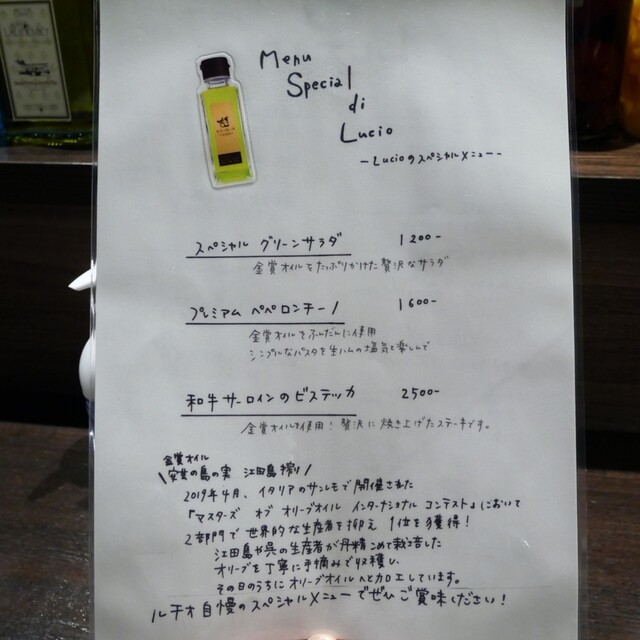 Menu
Special
di
Lucio
－Lucioのスペシャルメニュー－
スペシャル グリーンサラダ 1200-
金賞オイルをたっぷりかけた贅沢なサラダ
プレミアム ペペロンチーノ 1600-
金賞オイルをふんだんに使用
シンプルなパスタを生ハムの塩気と楽しんで
和牛サーロインのビステッカ 2500-
金賞オイルを使用！贅沢に焼き上げたステーキです。
金賞オイル
\安芸の島の実 江田島搾り/
2019年4月、イタリアのサンレモで開催された
『マスターズ オブ オリーブオイル インターナショナル コンテスト』において
2部門で世界的な生産者を抑え 1位を獲得！
江田島や呉の生産者が丹精こめて栽培した
オリーブを丁寧に手摘みで収穫し、
その日のうちにオリーブオイルへと加工しています。
ルチオ自慢のスペシャルメニューでぜひご賞味ください！